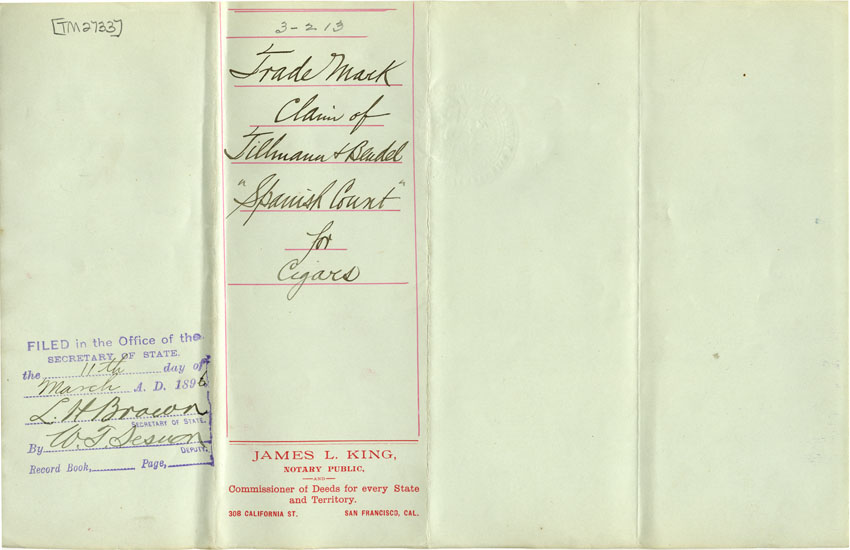 [TM2733]
3-213
Trade Mark
Claim of
Tillmann & Bendel
"Spanish Count"
for
Cigars
FILED in the Office of the
SECRETARY OF STATE.
the 11th day of
March A. D. 1896
L. H. Brown
SECRETARY OF STATE.
By W. T. Sesnon
DEPUTY.
Record Book, Page,
JAMES L. KING,
NOTARY PUBLIC,
AND
Commissioner of Deeds for every State
and Territory.
308 CALIFORNIA ST. SAN FRANCISCO, CAL.